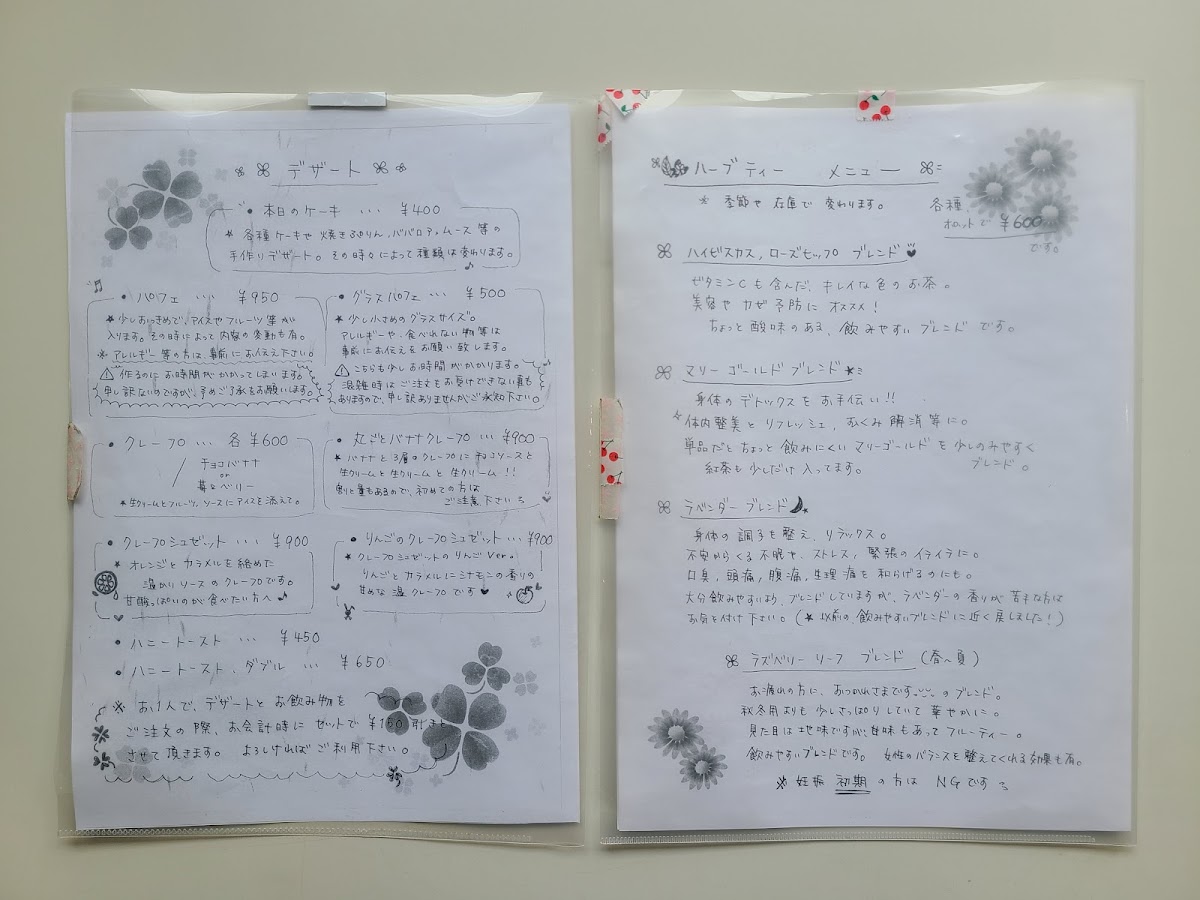 デザート
・本日のケーキ … ¥400
* 各種ケーキや焼きぷりん、ババロア、ムース等の
手作りデザート。その時々によって種類は変わります。
・パフェ … ¥950
* 少しおっきめで、アイスやフルーツ等が
入ります。その時によって内容の変動も有。
※ アレルギー等の方は、事前にお伝え下さい。
⚠ 作るのにお時間がかかってしまいます。
申し訳ないのですが、予めご了承をお願いします。
・グラスパフェ … ¥500
* 少し小さめのグラスサイズ。
アレルギーや、食べれない物等は
事前にお伝えをお願い致します。
⚠ こちらも少しお時間がかかります。
混雑時はご注文をお受けできない事も
ありますので、申し訳ありませんがご承知下さい。
・クレープ … 各¥600
チョコバナナ
or
苺&ベリー
* 生クリームとフルーツ、ソースにアイスを添えて。
・丸ごとバナナクレープ … ¥900
* バナナと3層のクレープにチョコソースと
生クリームと生クリームと生クリーム!!
量もあるので、初めての方は
ご注意下さい
・クレープシュゼット … ¥900
* オレンジとカラメルを絡めた
温かいソースのクレープです。
甘酸っぱいのが食べたい方へ♪
・りんごのクレープシュゼット … ¥900
* クレープシュゼットのりんごVer。
りんごとカラメルにシナモンの香りの
甘めな温クレープです♥
・ハニートースト … ¥450
・ハニートースト、ダブル … ¥650
※ お1人で、デザートとお飲み物を
ご注文の際、お会計時にセットで¥150引きと
させて頂きます。 よろしければご利用下さい。
ハーブティー メニュー
* 季節や在庫で変わります。
各種、
ポットで ¥600
です。
ハイビスカス, ローズヒップ ブレンド
ビタミンCも含んだ、キレイな色のお茶。
美容やカゼ予防にオススメ!
ちょっと酸味のある、飲みやすいブレンドです。
マリーゴールドブレンド
身体のデトックスをお手伝い!!
体内整美とリフレッシュ、むくみ解消等に。
単品だとちょっと飲みにくいマリーゴールドを少しのみやすく
ブレンド。
紅茶も少しだけ入ってます。
ラベンダーブレンド
身体の調子を整え、リラックス。
不安からくる不眠や、ストレス、緊張のイライラに。
口臭, 頭痛, 腹痛, 生理痛を和らげるのにも。
大分飲みやすいよう、ブレンドしていますが、ラベンダーの香りが苦手な方は
お気を付け下さい。(* 以前の、飲みやすいブレンドに近く戻しました!)
ラズベリーリーフ ブレンド (春〜夏)
お疲れの方に、おつかれさまです。のブレンド。
秋冬用よりも少しさっぱりしていて華やかに。
見た目は地味ですが、甘味もあってフルーティー。
飲みやすいブレンドです。 女性のバランスを整えてくれる効果も有。
※ 妊娠初期の方はNGです